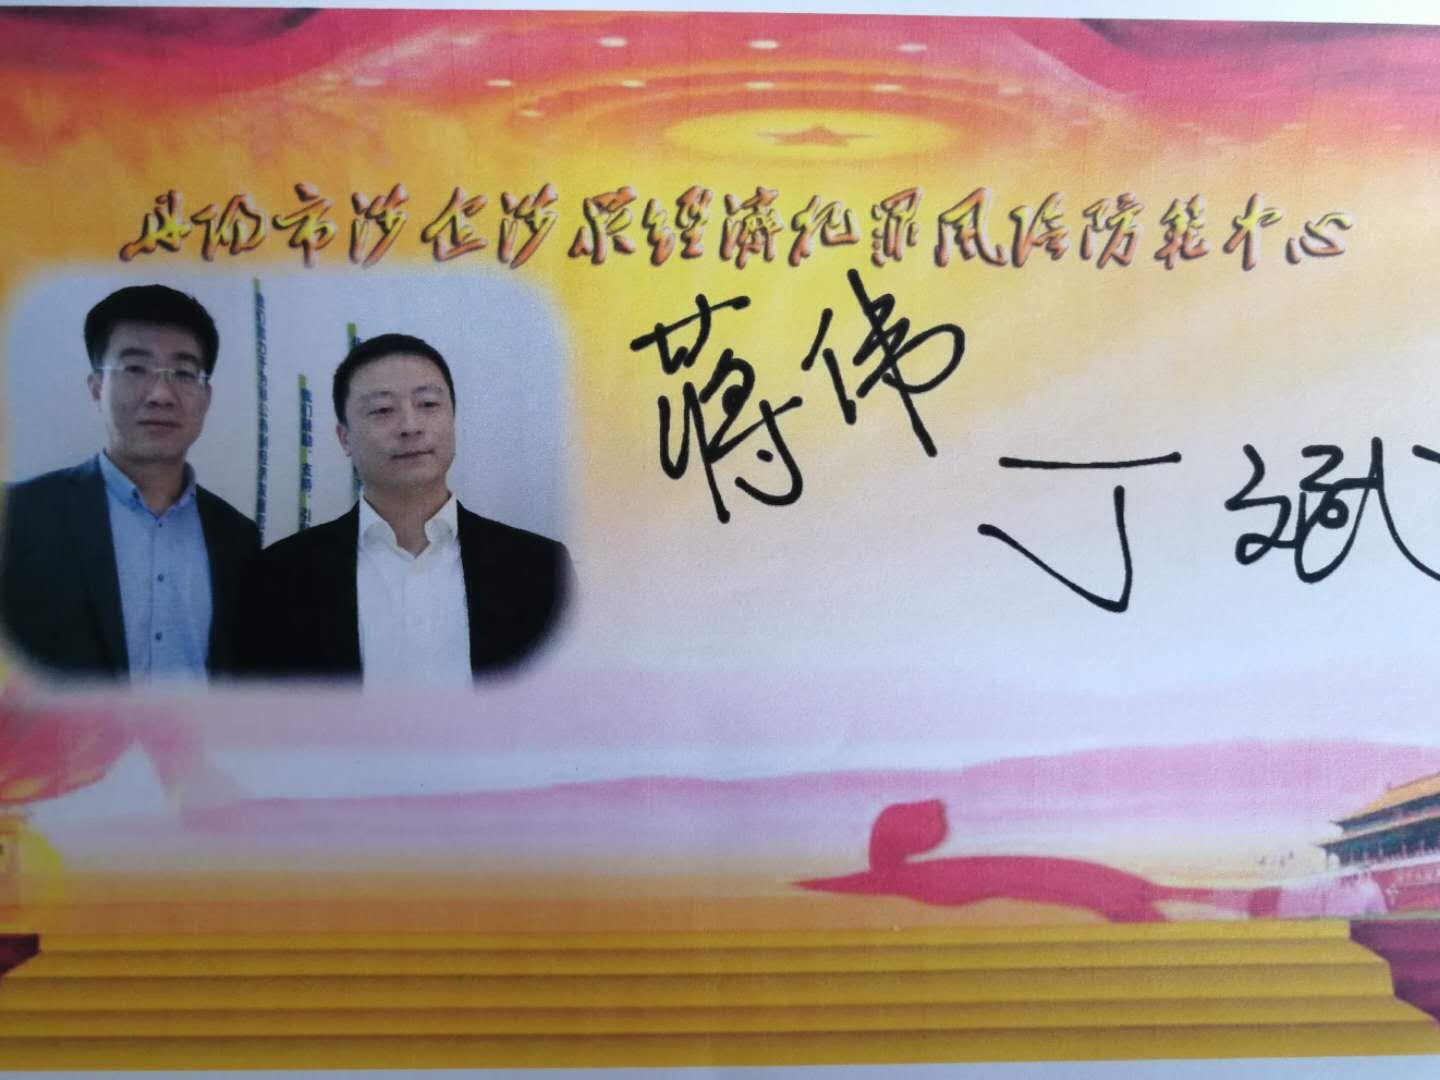 丹阳市涉企涉众经济犯罪风险防范中心
蒋伟
丁斌